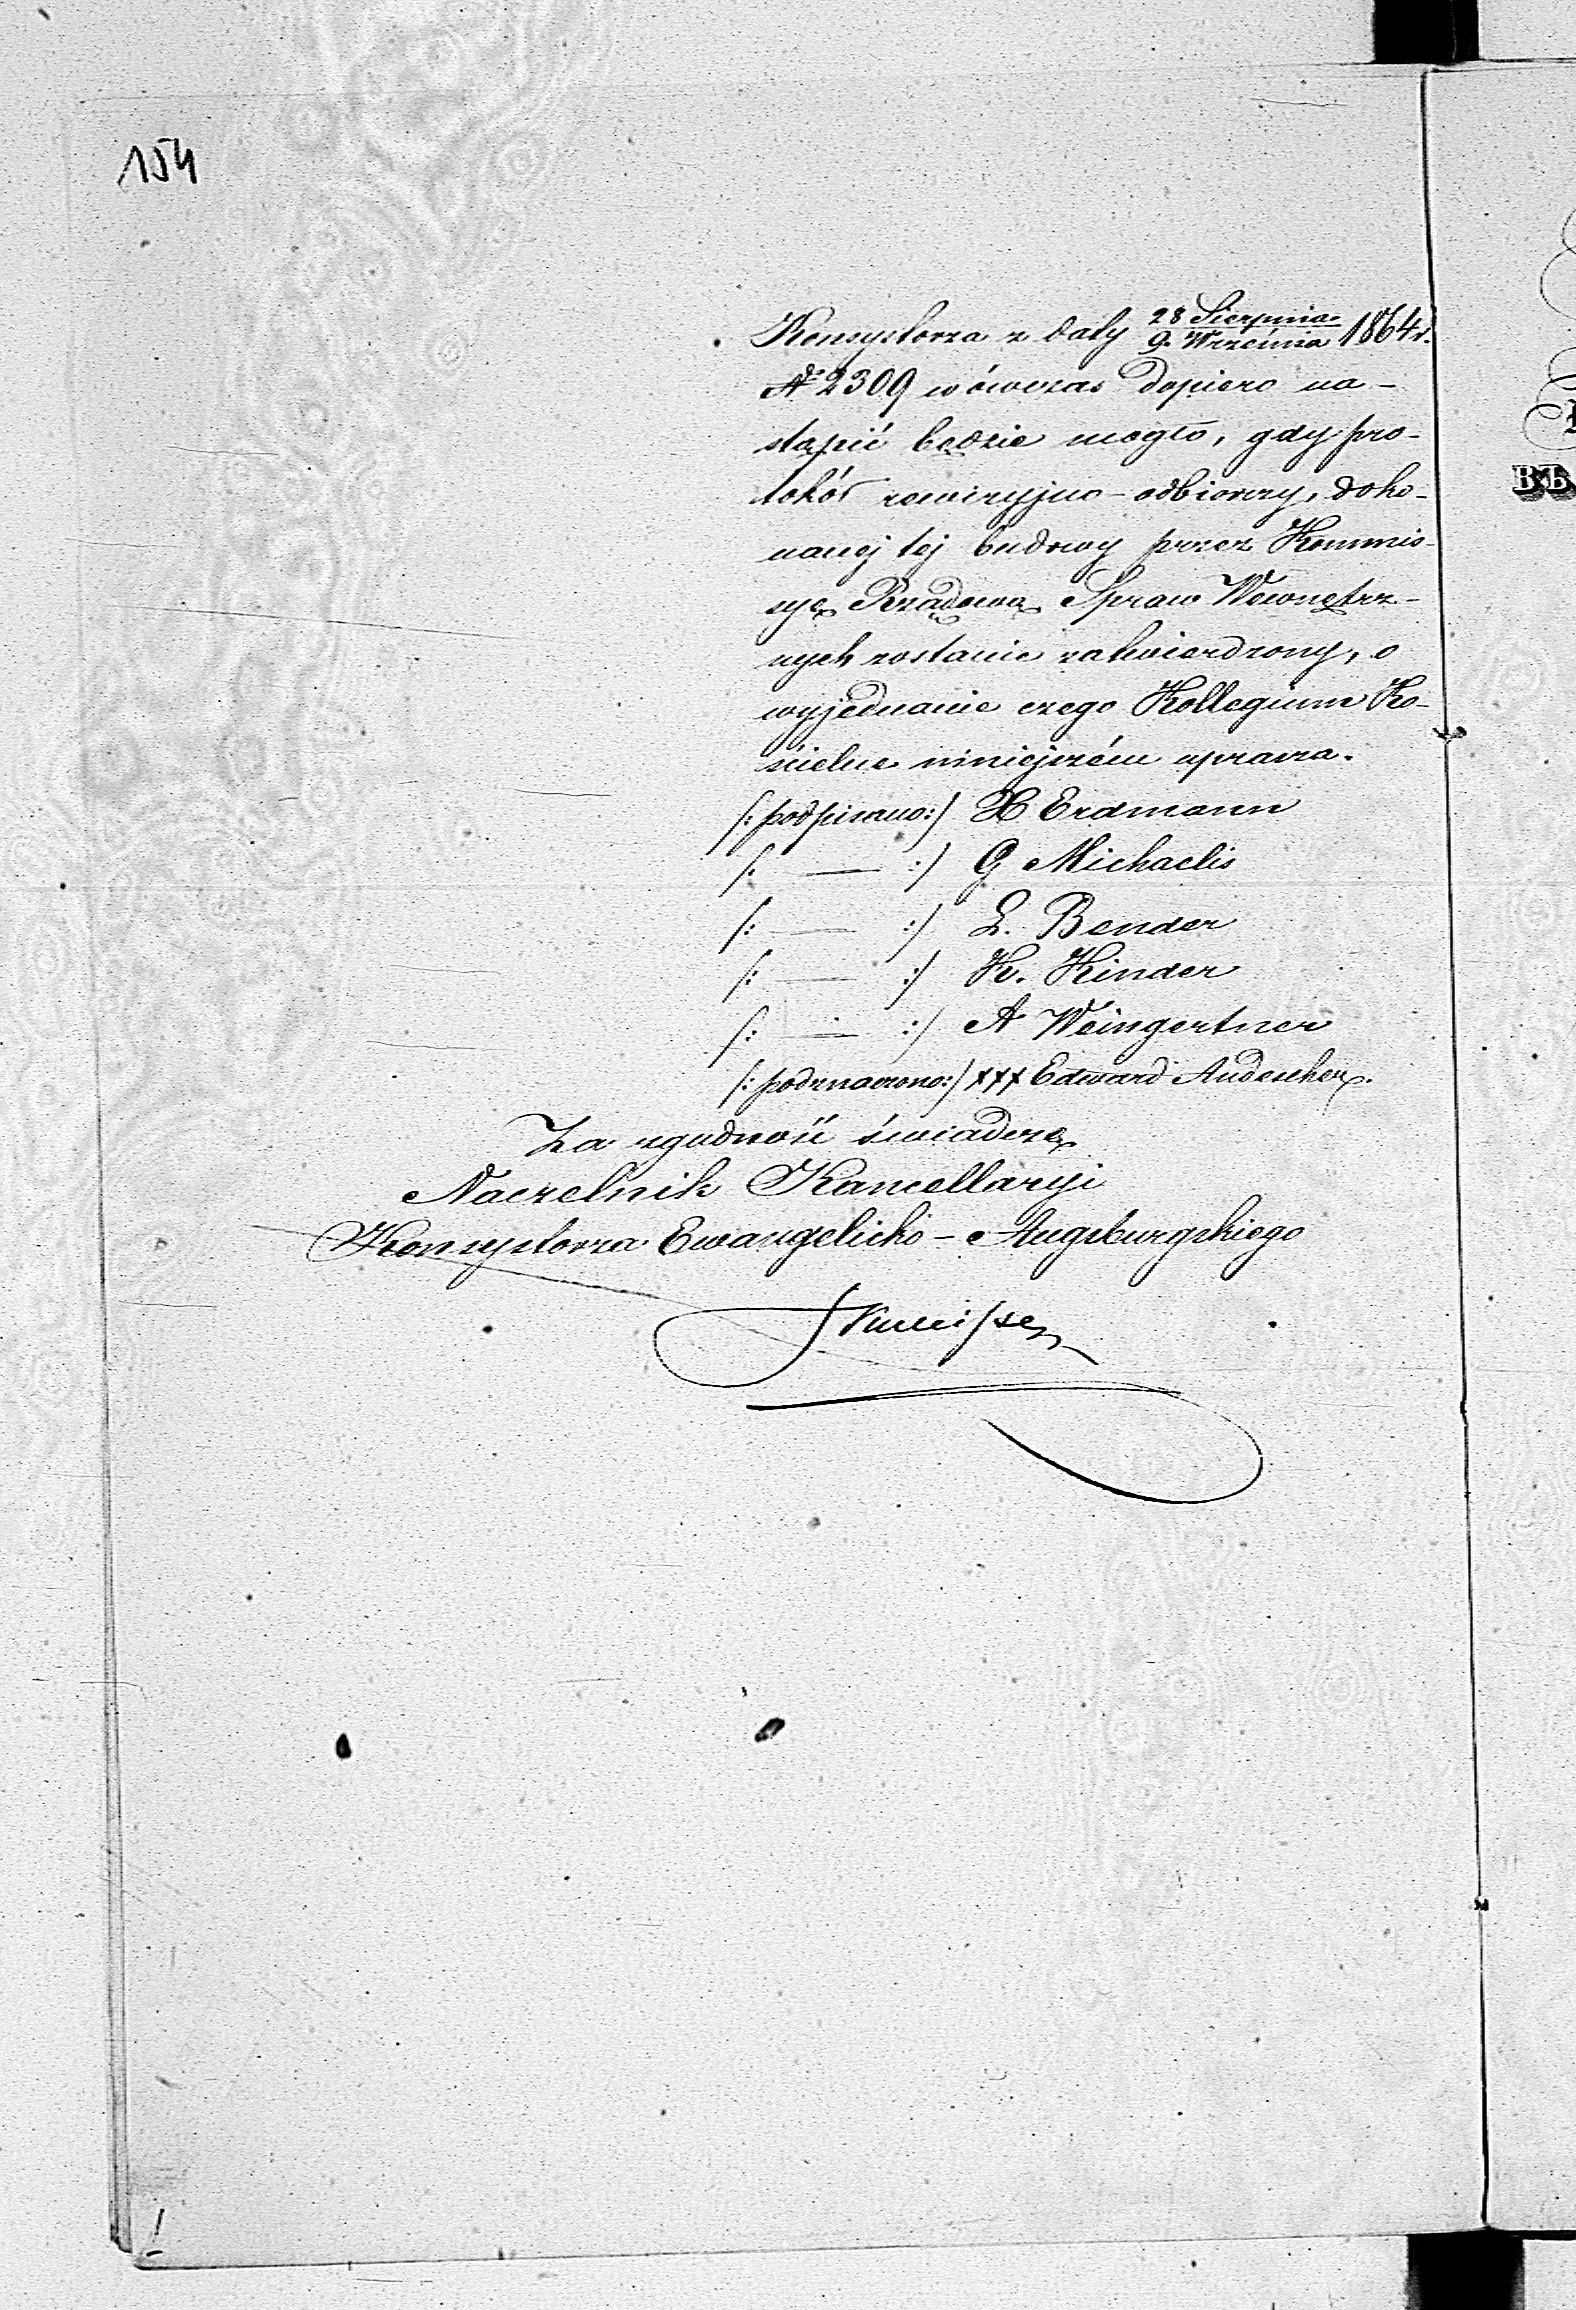 154
Konsystorza z daty 28 Sierpnia / 9. Września 1864 r.
№ 2309 wówczas dopiero na-
stąpić będzie mogło, gdy pro-
tokół rewizyjno-odbiorczy, doko-
nanej tej budowy przez Kommis-
syę Rządową Spraw Wewnętrz-
nych zostanie zatwierdzony, o
wyjednanie czego Kollegium Ko-
ścielne niniejszém uprasza.
/: podpisano :/ H Erdmann
/: — :/ G Michaelis
/: — :/ L. Bender
/: — :/ K. Kinder
/: — :/ A Weingertner
/: podznaczono :/ XXX Edward
Za zgodność świadczę
Naczelnik Kancellaryi
Konsystorza Ewangelicko-Augsburgskiego
ВЪ